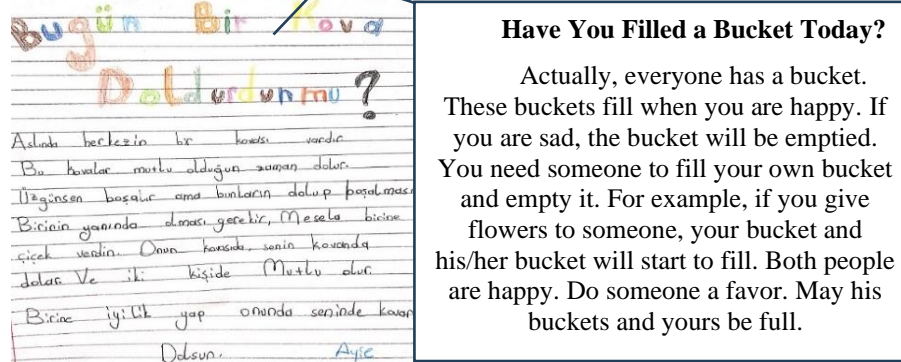 Bugün Bir Kova
Doldurdunmu?
Aslında herkezin bir kovası vardır.
Bu kovalar mutlu olduğun zaman dolur.
Üzgünsen boşalır ama bunların dolup boşalması
Birinin yanında olması gerekir, Mesela birine
çiçek verdin. Onun kovasıda, senin kovanda
dolar. Ve iki kişide Mutlu olur.
Birine iyilik yap onunda seninde kovan
Dolsun. Ayşe
Have You Filled a Bucket Today?
Actually, everyone has a bucket.
These buckets fill when you are happy. If
you are sad, the bucket will be emptied.
You need someone to fill your own bucket
and empty it. For example, if you give
flowers to someone, your bucket and
his/her bucket will start to fill. Both people
are happy. Do someone a favor. May his
buckets and yours be full.